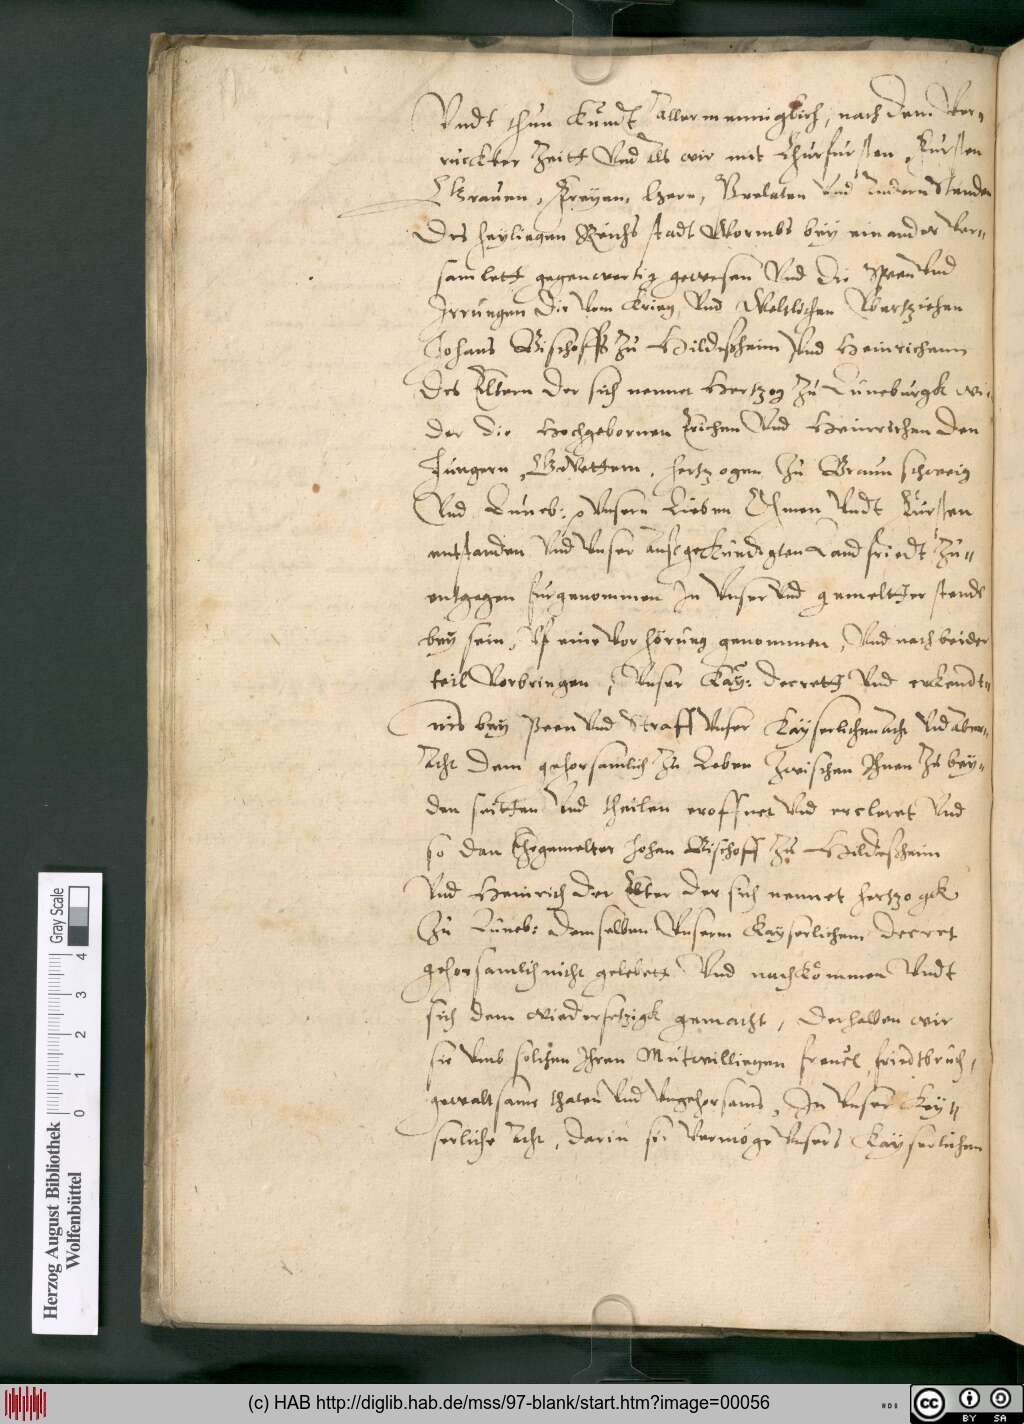 Vndt thun kundt allermenniglich, nach dem ver-
ruckter Zeitt vnd als wir mit Churfursten, Fursten
Grauen, Freyen, hern, Prelaten vnd andern Stenden
des heyligen Reichs stadt Wormbs bey einander ver-
samlett gegenwertig gewesen vnd die speen vnd
Irrungen die vom krieg vnd
Johans Bischoffs zu Hildeßheim vnd Heinrichenn
des Eltern der sich nennet Hertzog zu Luneburgk wi-
der die Hochgebornen Erichen vnd Heinrichen den
Jungern, Gevettern, hertzogen zu Braunschweig
vnd Luneb: vnsern Lieben Ohmen vndt Fursten
entstanden vnd vnser außgekundigten Landfriedt zu-
entgegen furgenommen In vnser vnd gemeltter stende
bey sein, vf eine vorhörung genommen, vnd nach beider
teil vorbringen, vnser Kay: decrett vnd erkendt-
nis bey Peen vnd Straff vnser kayserlichen acht vnd aber-
acht dem gehorsamlich zu Leben zwischen Ihnen zu bey-
den seitten vnd theilen eroffnet vnd ercleret vnd
so dan Ehegemelter Johan Bischoff zu Hildeßheim
vnd Heinrich der Elter der sich nennet hertzogk
zu Luneb: demselben vnserm kayserlichem decret
gehorsamlich nicht gelebett vnd nachkommen vndt
sich dem wiedersetzigk gemacht, derhalben wir
sie vmb solchen Ihren Mutwilligen freuel, friedtbruch,
gewaltsame thaten vnd vngehorsams, In vnser Key-
serliche acht, darin sie vermöge vnsers kayserlichen
Herzog August Bibliothek
Wolfenbüttel
0 1 2 3 4
Gray Scale
(c) HAB http://diglib.hab.de/mss/97-blank/start.htm?image=00056
cc BY SA